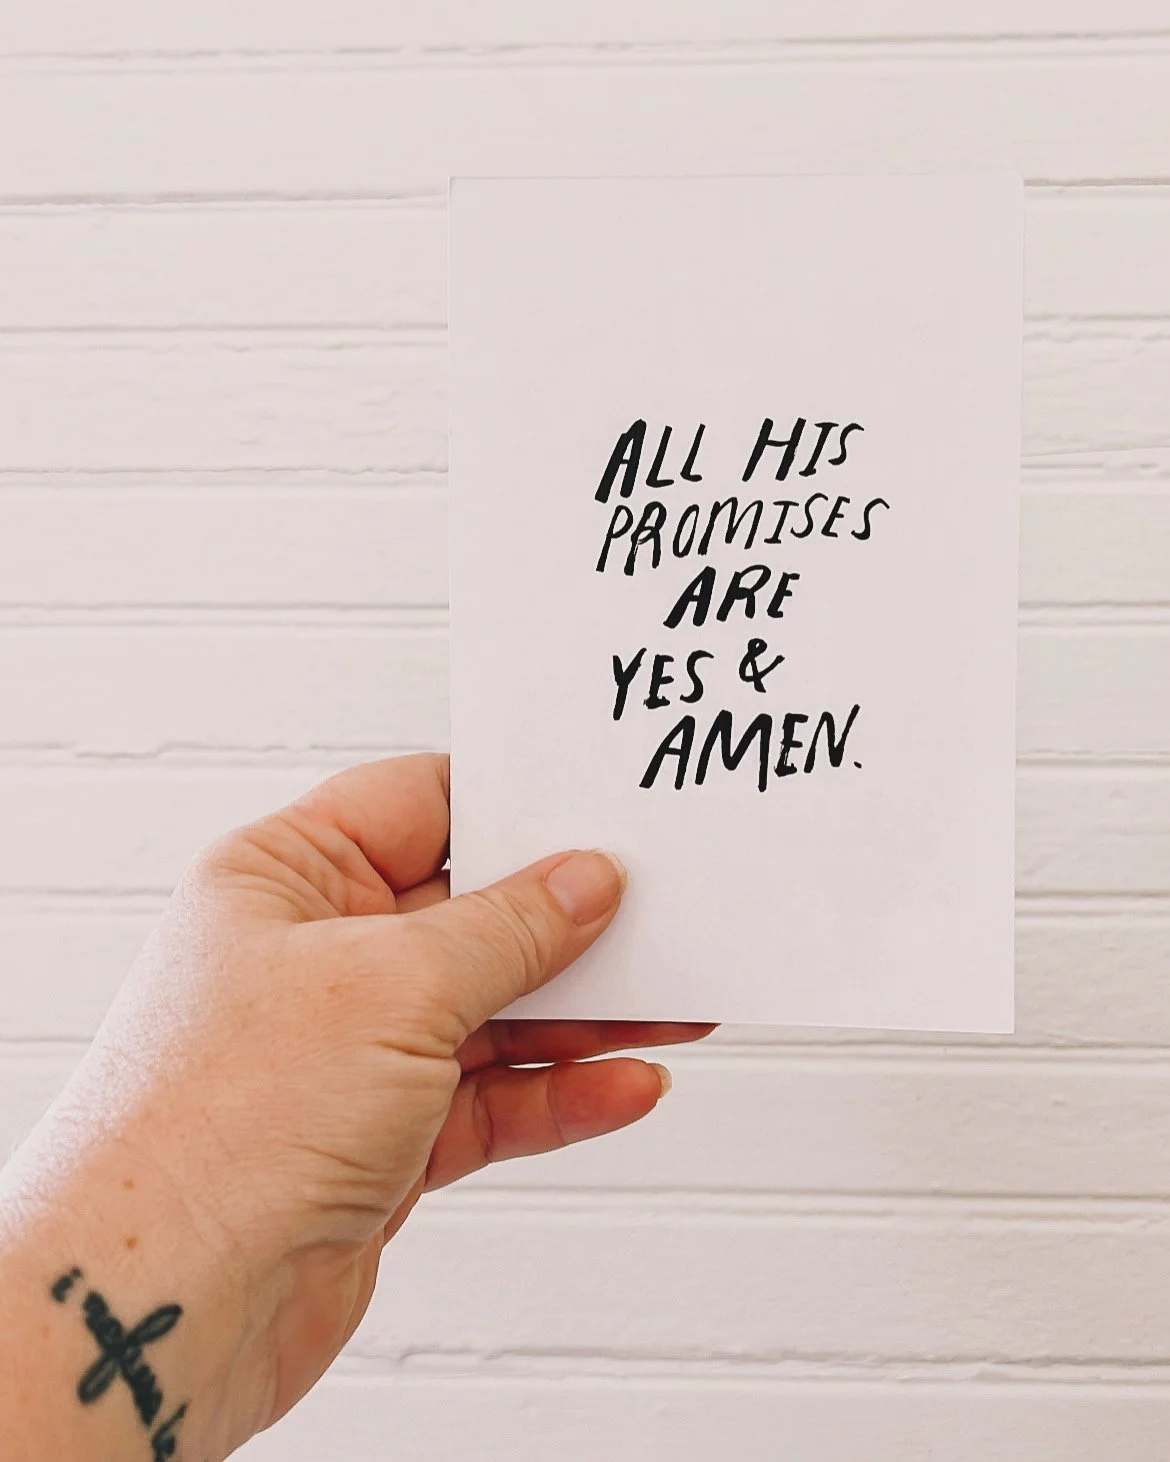 ALL HIS
PROMISES
ARE
YES &
AMEN.
i